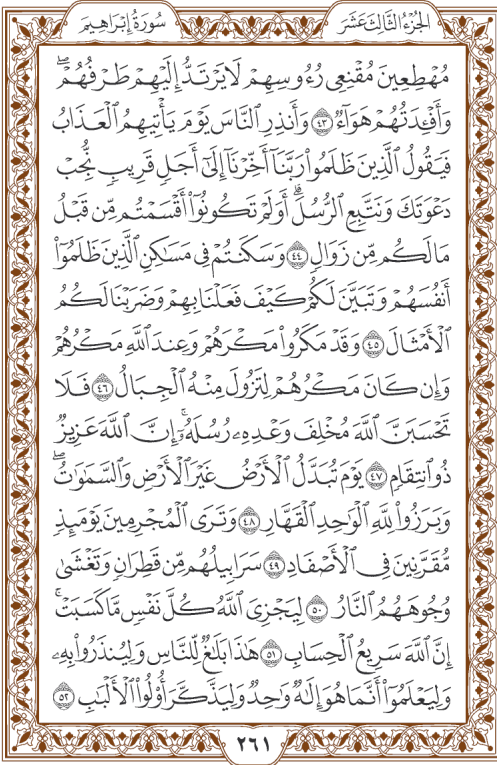 الجزء الثالث عشر
سورة إبراهيم
مُهْطِعِينَ مُقْنِعِى رُءُوسِهِمْ لَا يَرْتَدُّ إِلَيْهِمْ طَرْفُهُمْ ۖ
وَأَفْـِٔدَتُهُمْ هَوَآءٌ ٤٣ وَأَنذِرِ ٱلنَّاسَ يَوْمَ يَأْتِيهِمُ ٱلْعَذَابُ
فَيَقُولُ ٱلَّذِينَ ظَلَمُوا۟ رَبَّنَآ أَخِّرْنَآ إِلَىٰٓ أَجَلٍ قَرِيبٍ نُّجِبْ
دَعْوَتَكَ وَنَتَّبِعِ ٱلرُّسُلَ ۗ أَوَلَمْ تَكُونُوٓا۟ أَقْسَمْتُم مِّن قَبْلُ
مَا لَكُم مِّن زَوَالٍ ٤٤ وَسَكَنتُمْ فِى مَسَـٰكِنِ ٱلَّذِينَ ظَلَمُوٓا۟
أَنفُسَهُمْ وَتَبَيَّنَ لَكُمْ كَيْفَ فَعَلْنَا بِهِمْ وَضَرَبْنَا لَكُمُ
ٱلْأَمْثَالَ ٤٥ وَقَدْ مَكَرُوا۟ مَكْرَهُمْ وَعِندَ ٱللَّهِ مَكْرُهُمْ
وَإِن كَانَ مَكْرُهُمْ لِتَزُولَ مِنْهُ ٱلْجِبَالُ ٤٦ فَلَا
تَحْسَبَنَّ ٱللَّهَ مُخْلِفَ وَعْدِهِۦ رُسُلَهُۥٓ ۗ إِنَّ ٱللَّهَ عَزِيزٌ
ذُو ٱنتِقَامٍ ٤٧ يَوْمَ تُبَدَّلُ ٱلْأَرْضُ غَيْرَ ٱلْأَرْضِ وَٱلسَّمَـٰوَٰتُ ۖ
وَبَرَزُوا۟ لِلَّهِ ٱلْوَٰحِدِ ٱلْقَهَّارِ ٤٨ وَتَرَى ٱلْمُجْرِمِينَ يَوْمَئِذٍ
مُّقَرَّنِينَ فِى ٱلْأَصْفَادِ ٤٩ سَرَابِيلُهُم مِّن قَطِرَانٍ وَتَغْشَىٰ
وُجُوهَهُمُ ٱلنَّارُ ٥٠ لِيَجْزِىَ ٱللَّهُ كُلَّ نَفْسٍ مَّا كَسَبَتْ ۚ
إِنَّ ٱللَّهَ سَرِيعُ ٱلْحِسَابِ ٥١ هَـٰذَا بَلَـٰغٌ لِّلنَّاسِ وَلِيُنذَرُوا۟ بِهِۦ
وَلِيَعْلَمُوٓا۟ أَنَّمَا هُوَ إِلَـٰهٌ وَٰحِدٌ وَلِيَذَّكَّرَ أُو۟لُوا۟ ٱلْأَلْبَـٰبِ ٥٢
٢٦١